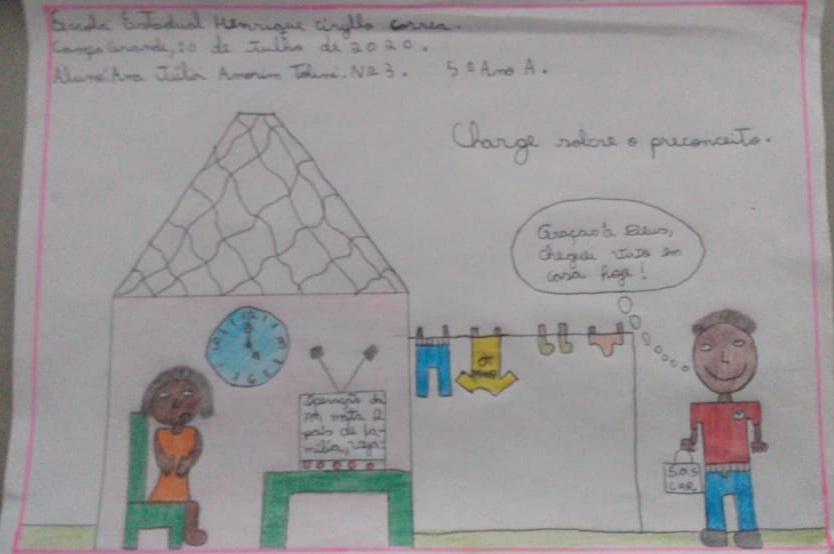 Escola Estadual Henrique Ciryllo Correa.
Campo Grande, 20 de Julho de 2020.
Aluna: Ana Júlia Amorim . Nº 3. 5º Ano A.
Charge sobre o preconceito.
Graças à Deus,
cheguei vivo em
casa hoje!
12
3
6
9
Operação da
PM mata 2
pais de fa-
mília, veja:
S.O.S
LAR